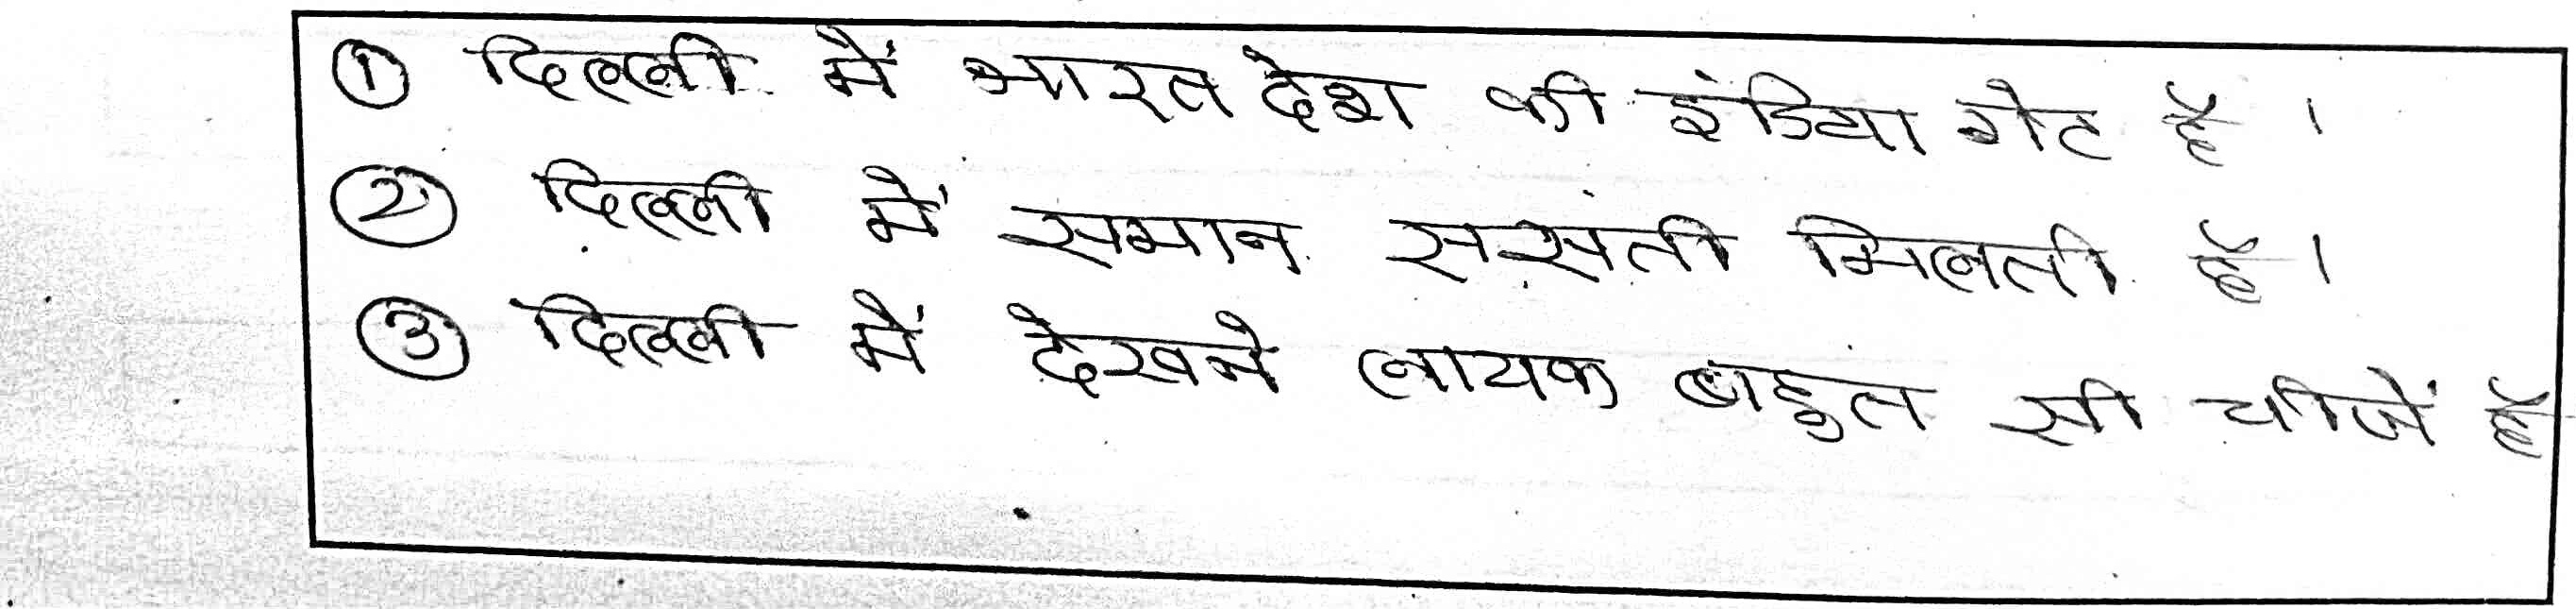 ① दिल्ली में भारत देश की इंडिया गेट है ।
② दिल्ली में समान ससंती मिलती है ।
③ दिल्ली में देखने लायक बाहुत सी चीजें है